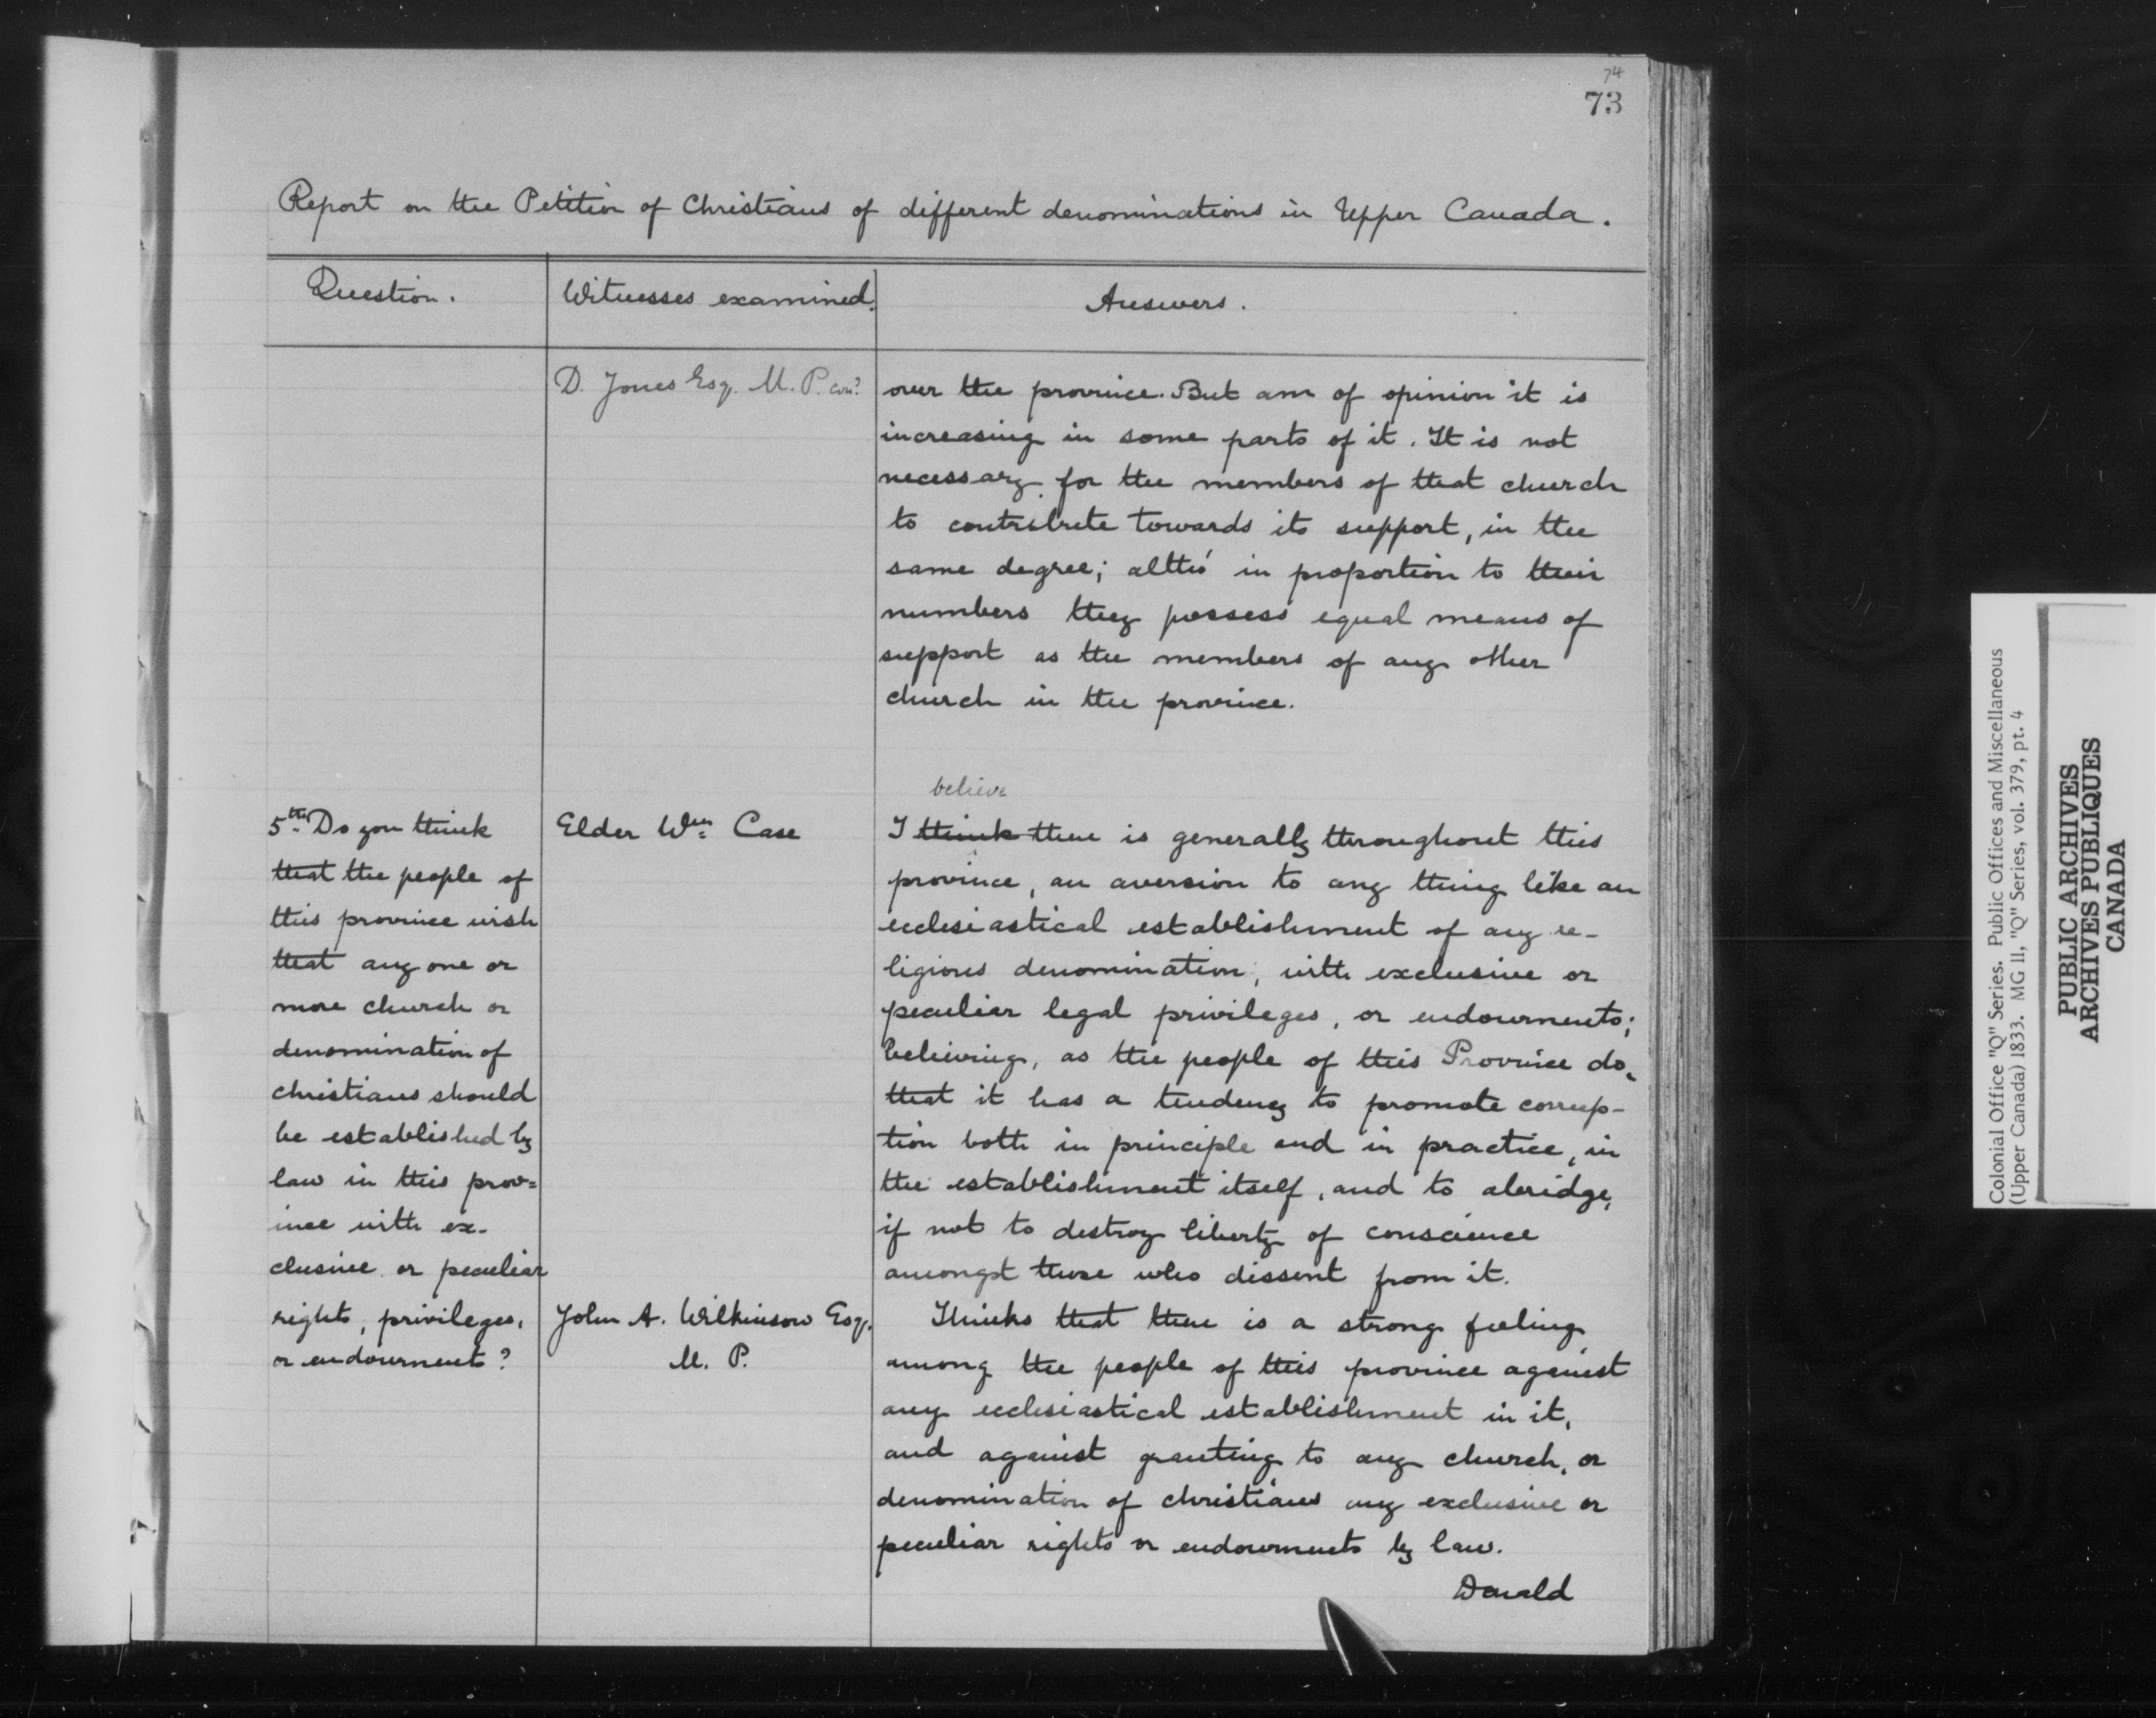 74
73
Report on the Petition of Christians of different denominations in Upper Canada.
Question.
Witnesses examined.
Answers.
D. Jones Esq. M. P. con?
over the province. But am of opinion it is
increasing in some parts of it. It is not
necessary for the members of that church
to contribute towards its support, in the
same degree; altho' in proportion to their
numbers they possess equal means of
support as the members of any other
church in the province.
5th Do you think
that the people of
this province wish
that any one or
more church or
denomination of
christians should
be established by
law in this prov=
ince with ex-
clusive or peculiar
rights, privileges,
or endowments?
Elder Wm Case
believe
I think there is generally throughout this
province, an aversion to any thing like an
ecclesiastical establishment of any re-
ligious denomination, with exclusive or
peculiar legal privileges, or endowments;
believing, as the people of this Province do,
that it has a tendency to promote corrup-
tion both in principle and in practice, in
the establishment itself, and to abridge,
if not to destroy liberty of conscience
amongst those who dissent from it.
John A. Wilkinson Esq.
M. P.
Thinks that there is a strong feeling
among the people of this province against
any ecclesiastical establishment in it,
and against granting to any church, or
denomination of christians any exclusive or
peculiar rights or endowments by law.
Donald
Colonial Office "Q" Series. Public Offices and Miscellaneous
(Upper Canada) 1833. MG 11, "Q" Series, vol. 379, pt. 4
PUBLIC ARCHIVES
ARCHIVES PUBLIQUES
CANADA